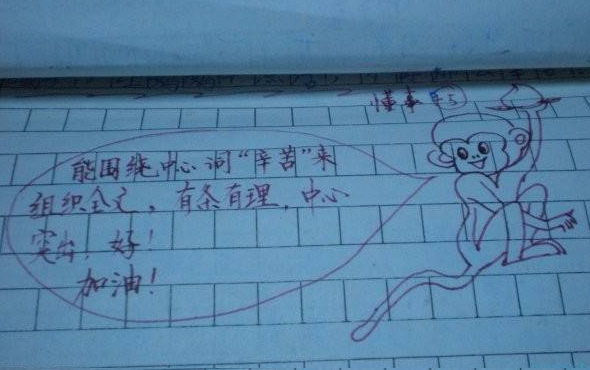 懂事
能围绕中心词“辛苦”来
组织全文，有条有理，中心
突出，好！
加油！